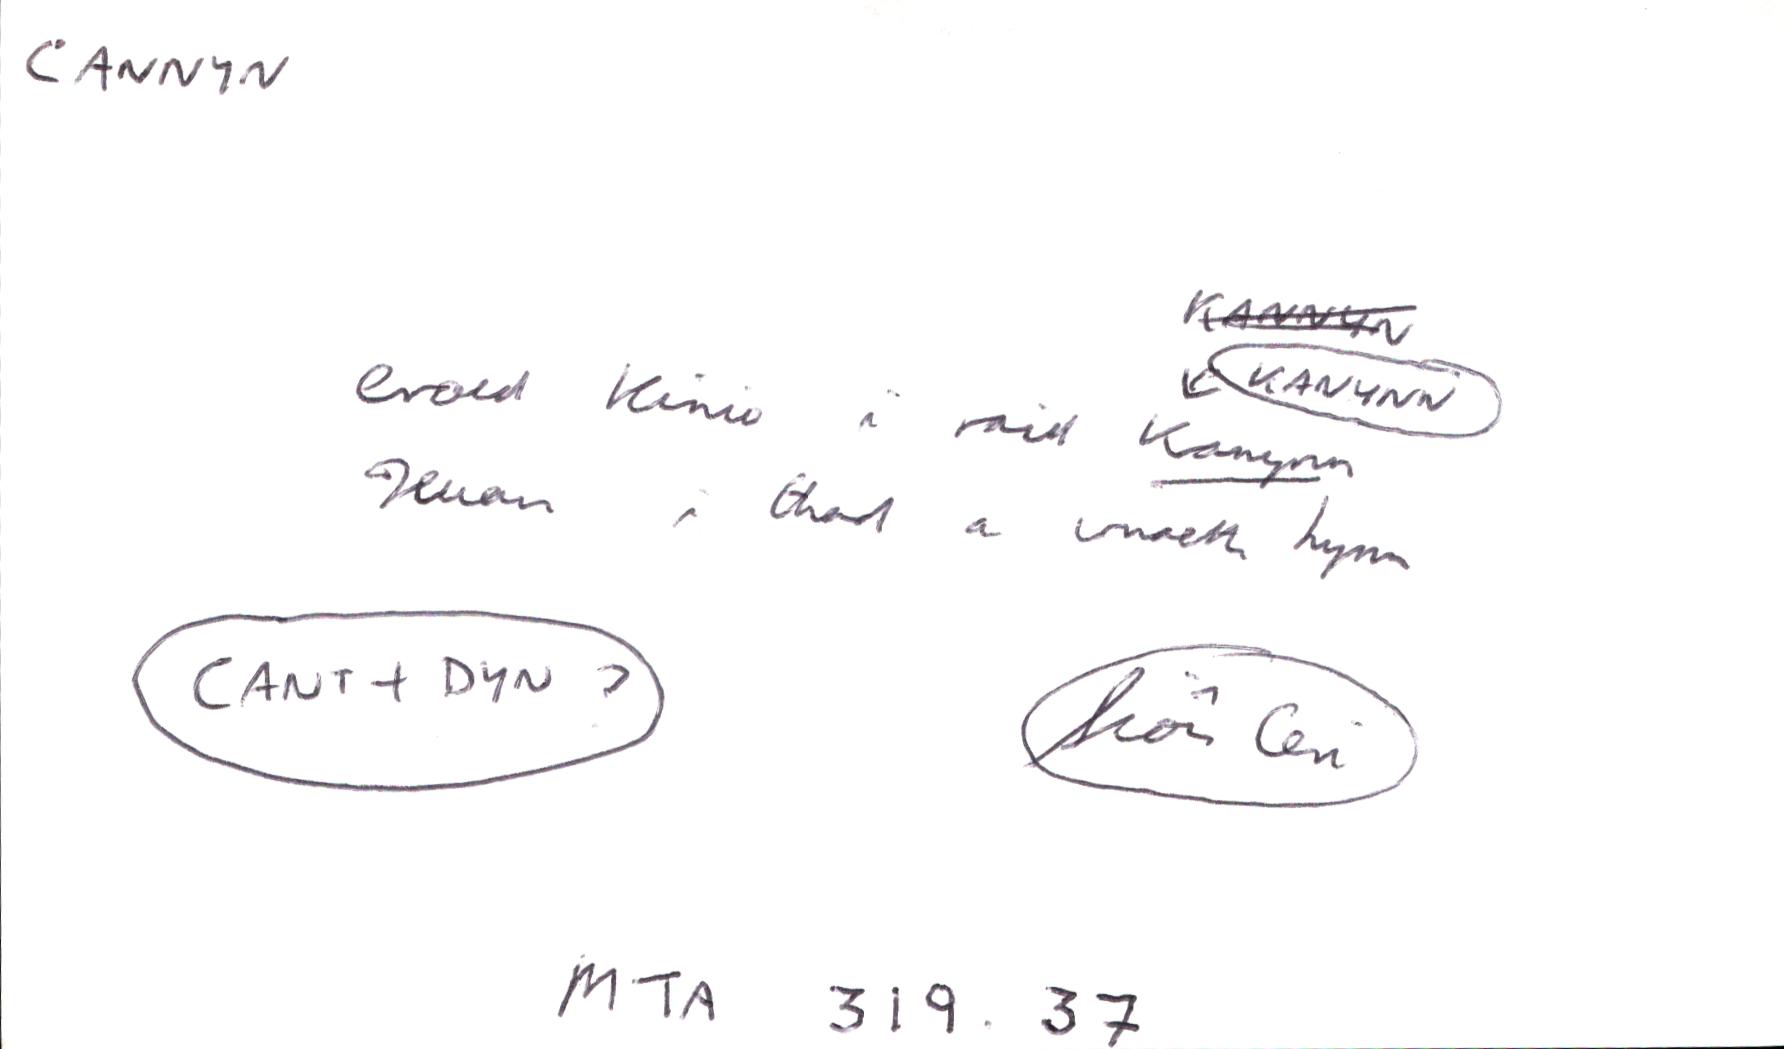 CANNYN
KANNYN
KANYNN
eroed Kinio i raid Kanynn
Ieuan i thad a wnaeth hynn
CANT + DYN ?
Siôn Ceri
MTA 319. 37